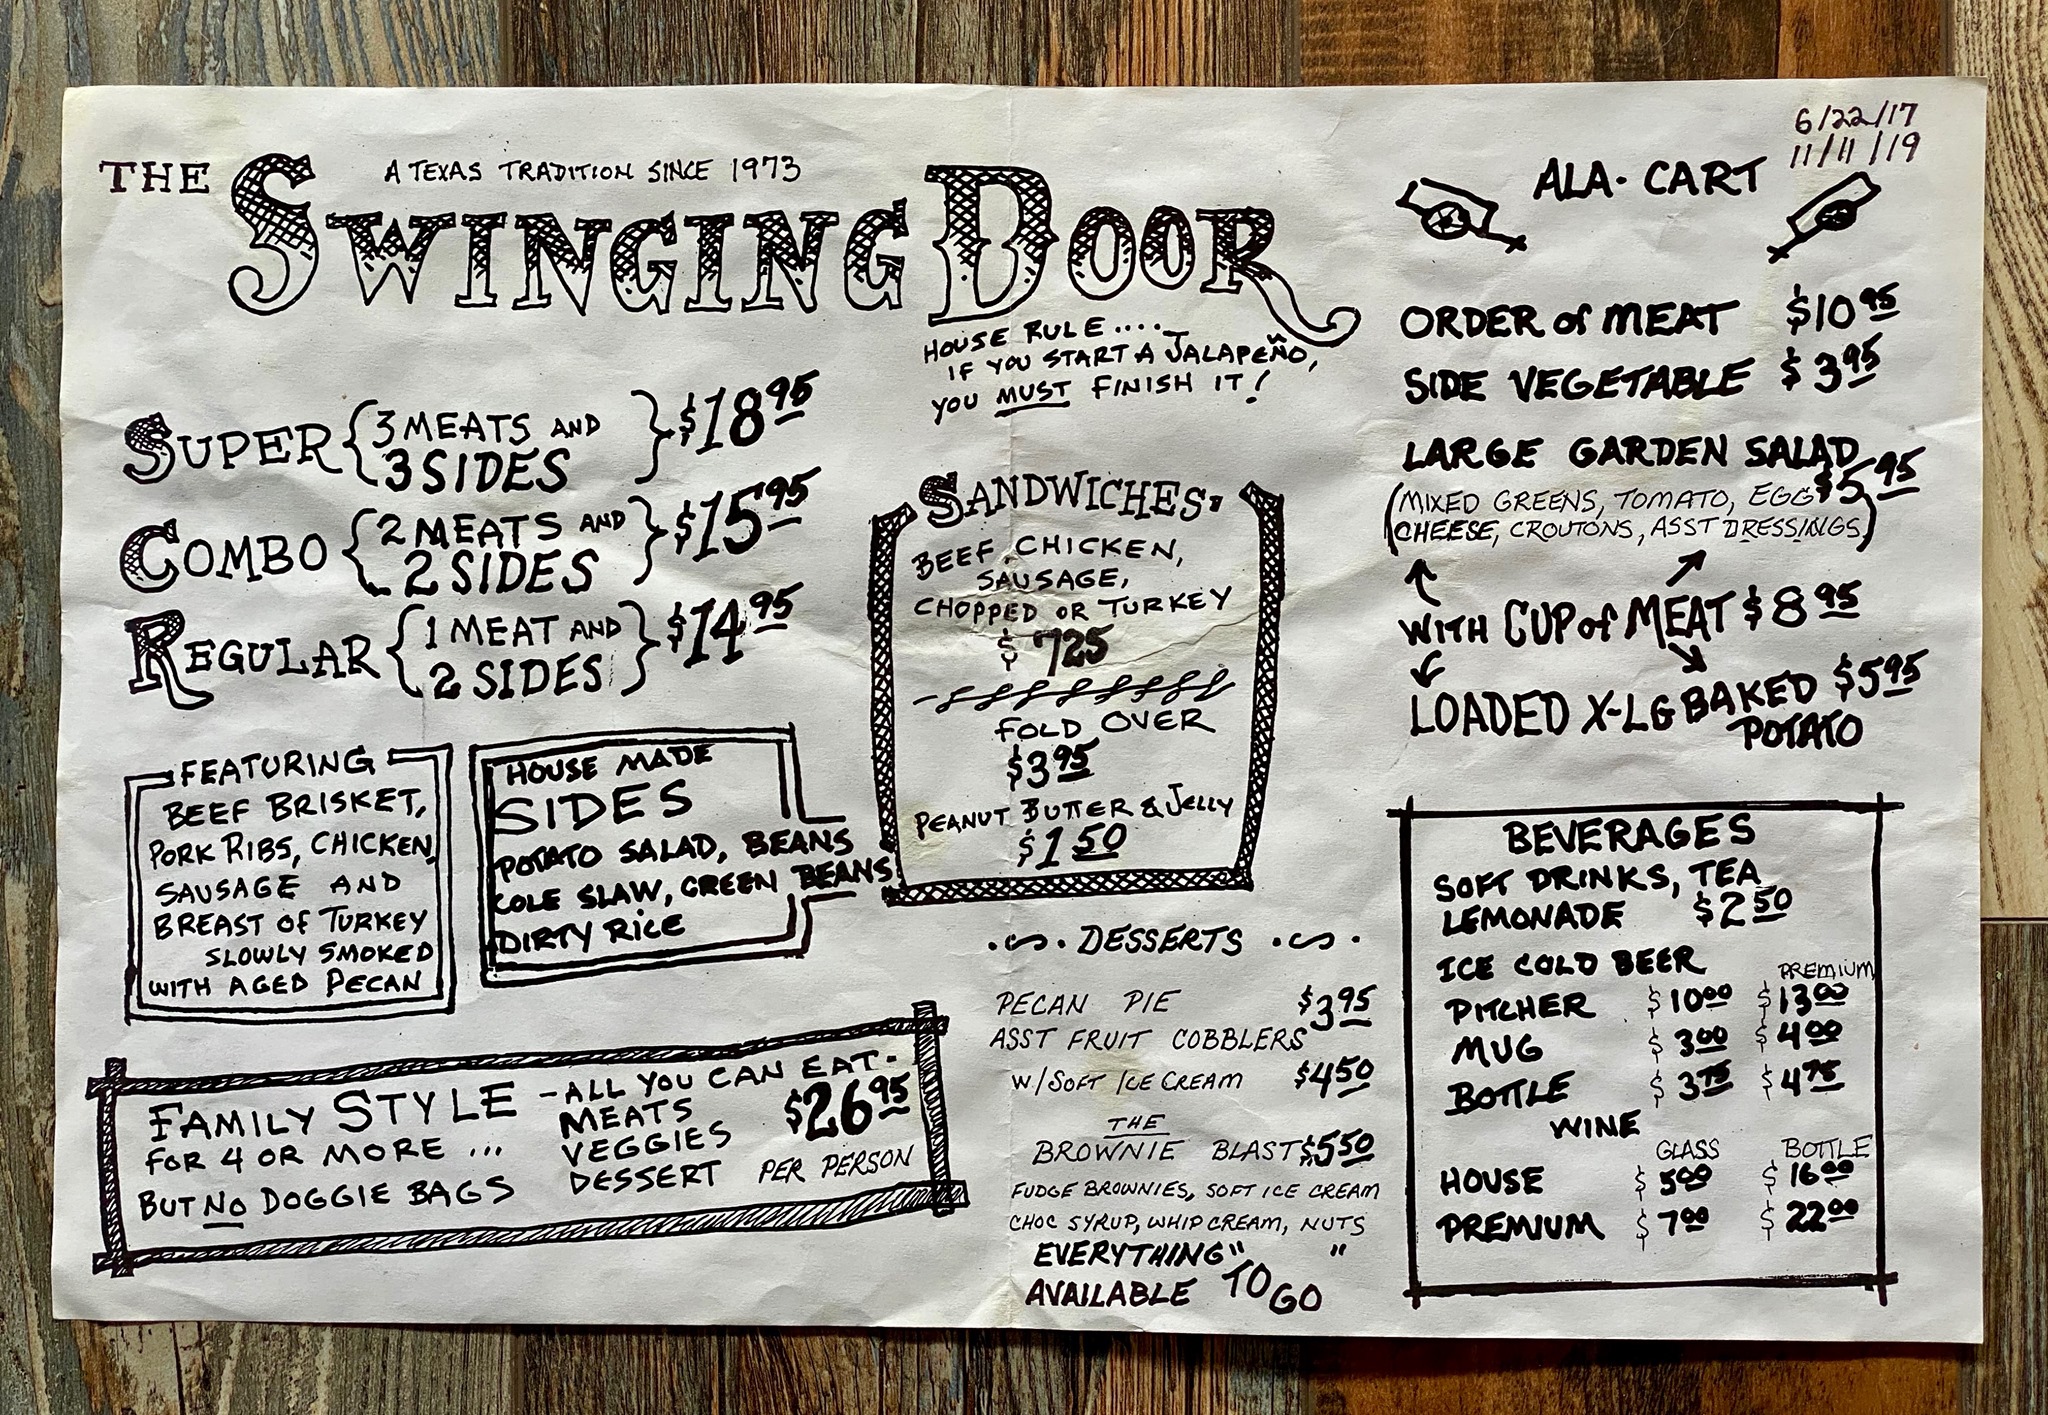 6/22/17
11/11/19
THE SWINGING DOOR
A TEXAS TRADITION SINCE 1973
HOUSE RULE....
IF YOU START A JALAPEÑO,
YOU MUST FINISH IT!
SUPER { 3 MEATS AND } $18.95
3 SIDES
COMBO { 2 MEATS AND } $15.95
2 SIDES
REGULAR { 1 MEAT AND } $14.95
2 SIDES
FEATURING
BEEF BRISKET,
PORK RIBS, CHICKEN,
SAUSAGE AND
BREAST OF TURKEY
SLOWLY SMOKED
WITH AGED PECAN
HOUSE MADE
SIDES
POTATO SALAD, BEANS
COLE SLAW, GREEN BEANS
DIRTY RICE
FAMILY STYLE - ALL YOU CAN EAT -
FOR 4 OR MORE ...
BUT NO DOGGIE BAGS
MEATS
VEGGIES
DESSERT
$26.95
PER PERSON
SANDWICHES
BEEF, CHICKEN,
SAUSAGE,
CHOPPED OR TURKEY
$7.25
FOLD OVER
$3.95
PEANUT BUTTER & JELLY
$1.50
DESSERTS
PECAN PIE $3.95
ASST FRUIT COBBLERS
W/SOFT ICE CREAM $4.50
THE
BROWNIE BLAST $5.50
FUDGE BROWNIES, SOFT ICE CREAM
CHOC SYRUP, WHIP CREAM, NUTS
EVERYTHING " "
AVAILABLE TO GO
ALA-CART
ORDER of MEAT $10.95
SIDE VEGETABLE $3.95
LARGE GARDEN SALAD
$5.95
(MIXED GREENS, TOMATO, EGG
CHEESE, CROUTONS, ASST DRESSINGS)
WITH CUP of MEAT $8.95
LOADED X-LG BAKED $5.95
POTATO
BEVERAGES
SOFT DRINKS, TEA
LEMONADE $2.50
ICE COLD BEER PREMIUM
PITCHER $10.00 $13.00
MUG $3.00 $4.00
BOTTLE $3.75 $4.75
WINE
GLASS BOTTLE
HOUSE $5.00 $16.00
PREMIUM $7.00 $22.00